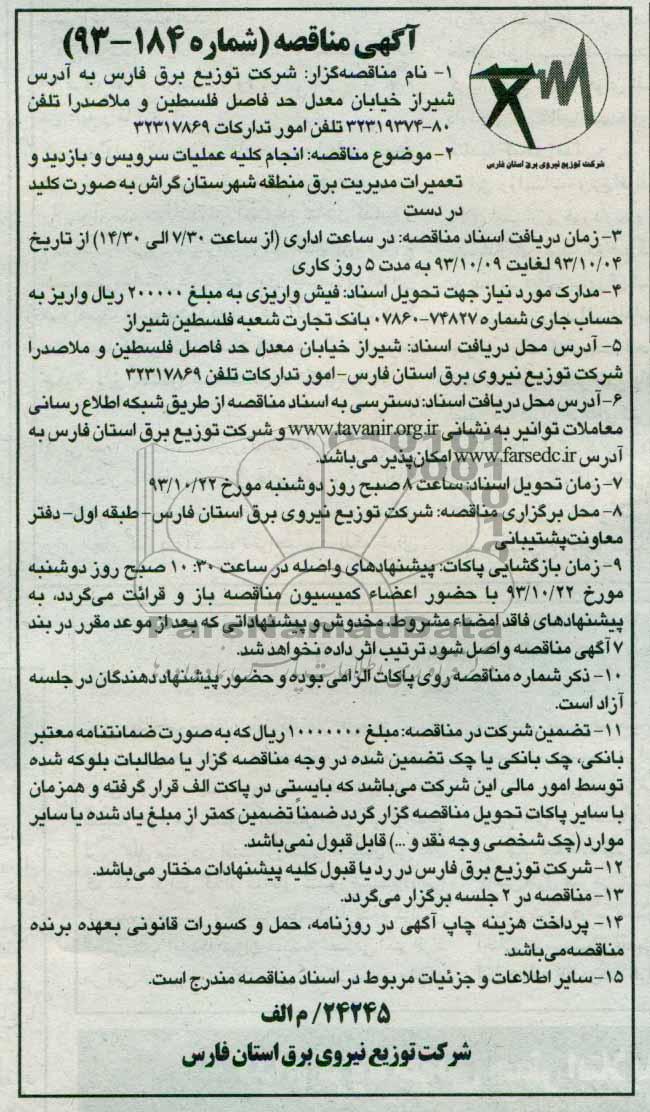 آگهی مناقصه (شماره ۱۸۴-۹۳)
شرکت توزیع نیروی برق استان فارس
۱- نام مناقصه‌گزار: شرکت توزیع برق فارس به آدرس
شیراز خیابان معدل حد فاصل فلسطین و ملاصدرا تلفن
۸۰-۳۲۳۱۹۳۷۴ تلفن امور تدارکات ۳۲۳۱۷۸۶۹
۲- موضوع مناقصه: انجام کلیه عملیات سرویس و بازدید و
تعمیرات مدیریت برق منطقه شهرستان گراش به صورت کلید
در دست
۳- زمان دریافت اسناد مناقصه: در ساعت اداری (از ساعت ۷/۳۰ الی ۱۴/۳۰) از تاریخ
۹۳/۱۰/۰۴ لغایت ۹۳/۱۰/۰۹ به مدت ۵ روز کاری
۴- مدارک مورد نیاز جهت تحویل اسناد: فیش واریزی به مبلغ ۲۰۰۰۰۰ ریال واریز به
حساب جاری شماره ۷۴۸۲۷-۰۷۸۶۰ بانک تجارت شعبه فلسطین شیراز
۵- آدرس محل دریافت اسناد: شیراز خیابان معدل حد فاصل فلسطین و ملاصدرا
شرکت توزیع نیروی برق استان فارس- امور تدارکات تلفن ۳۲۳۱۷۸۶۹
۶- آدرس محل دریافت اسناد: دسترسی به اسناد مناقصه از طریق شبکه اطلاع رسانی
معاملات توانیر به نشانی www.tavanir.org.ir و شرکت توزیع برق استان فارس به
آدرس www.farsedc.ir امکان‌پذیر می‌باشد.
۷- زمان تحویل اسناد: ساعت ۸ صبح روز دوشنبه مورخ ۹۳/۱۰/۲۲
۸- محل برگزاری مناقصه: شرکت توزیع نیروی برق استان فارس- طبقه اول- دفتر
معاونت پشتیبانی
۹- زمان بازگشایی پاکات: پیشنهادهای واصله در ساعت ۱۰:۳۰ صبح روز دوشنبه
مورخ ۹۳/۱۰/۲۲ با حضور اعضاء کمیسیون مناقصه باز و قرائت می‌گردد، به
پیشنهادهای فاقد امضاء مشروط، مخدوش و پیشنهاداتی که بعد از موعد مقرر در بند
۷ آگهی مناقصه واصل شود ترتیب اثر داده نخواهد شد.
۱۰- ذکر شماره مناقصه روی پاکات الزامی بوده و حضور پیشنهاد دهندگان در جلسه
آزاد است.
۱۱- تضمین شرکت در مناقصه: مبلغ ۱۰۰۰۰۰۰۰ ریال که به صورت ضمانتنامه معتبر
بانکی، چک بانکی یا چک تضمین شده در وجه مناقصه گزار یا مطالبات بلوکه شده
توسط امور مالی این شرکت می‌باشد که بایستی در پاکت الف قرار گرفته و همزمان
با سایر پاکات تحویل مناقصه گزار گردد ضمناً تضمین کمتر از مبلغ یاد شده یا سایر
موارد (چک شخصی وجه نقد و ...) قابل قبول نمی‌باشد.
۱۲- شرکت توزیع برق فارس در رد یا قبول کلیه پیشنهادات مختار می‌باشد.
۱۳- مناقصه در ۲ جلسه برگزار می‌گردد.
۱۴- پرداخت هزینه چاپ آگهی در روزنامه، حمل و کسورات قانونی بعهده برنده
مناقصه می‌باشد.
۱۵- سایر اطلاعات و جزئیات مربوط در اسناد مناقصه مندرج است.
۲۴۲۴۵/ م الف
شرکت توزیع نیروی برق استان فارس
ParsNamadData